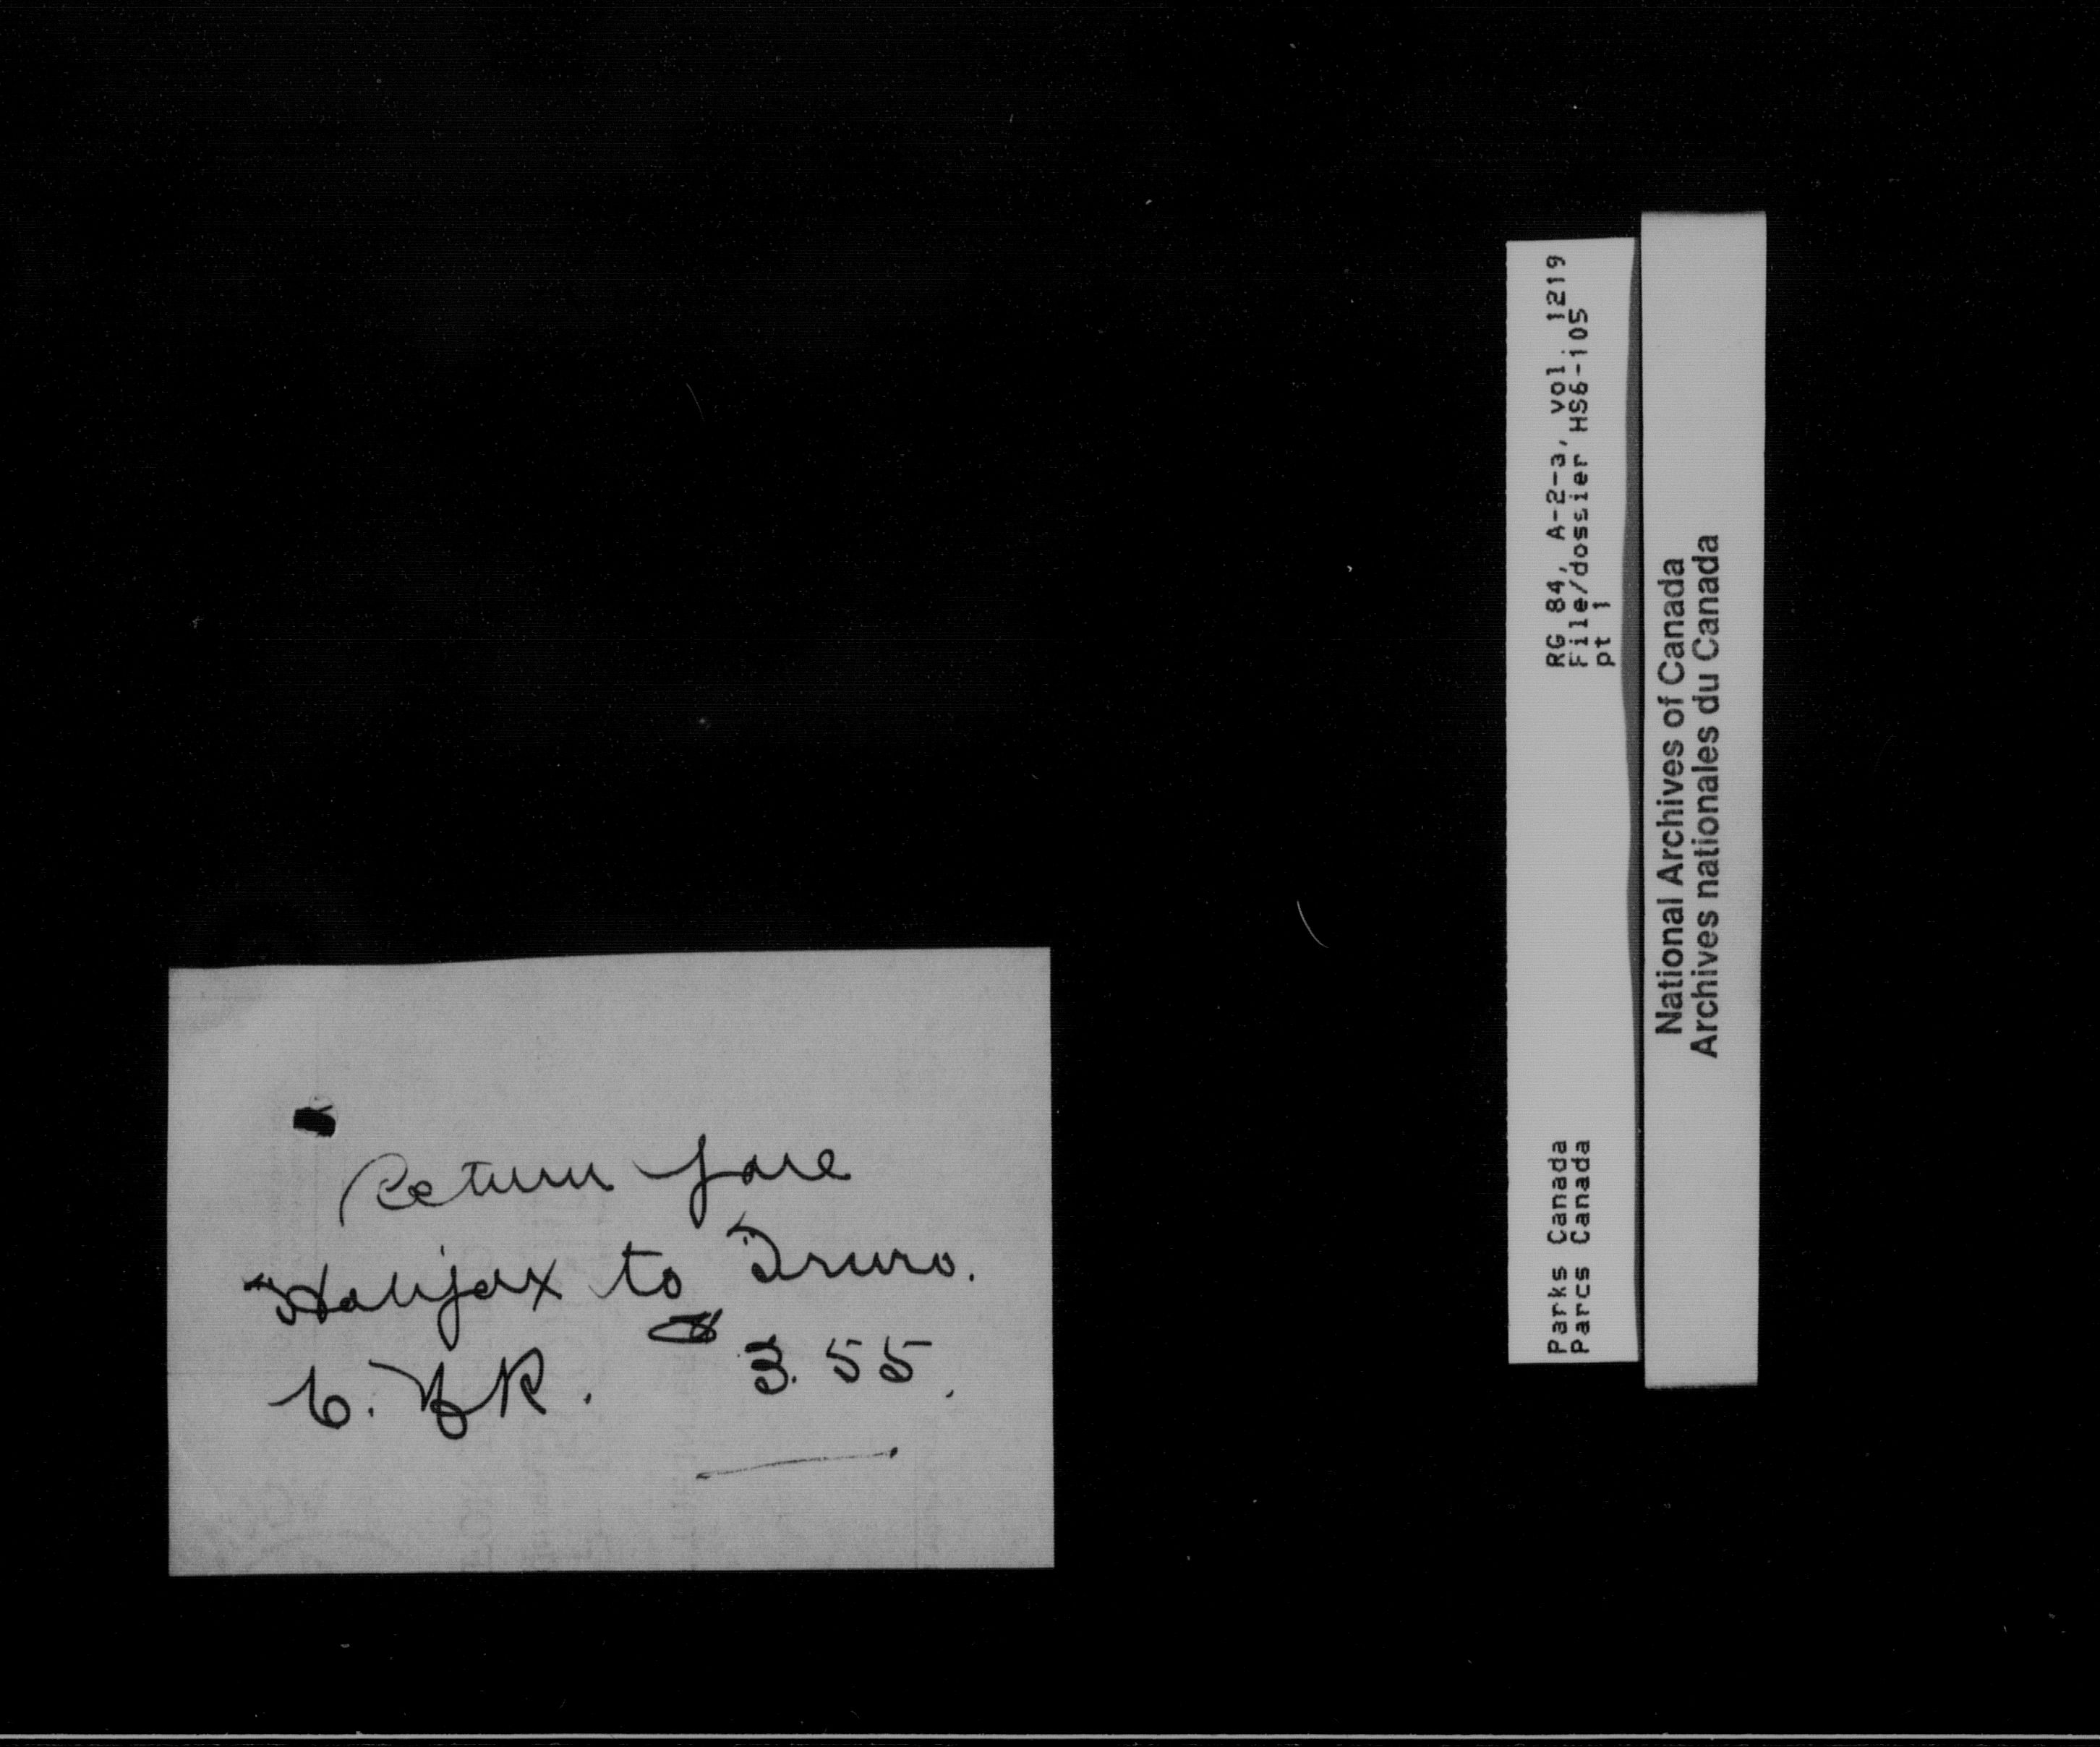 Return fare
Halifax to Truro.
C. N R. 3.55.
RG 84, A-2-a, vol. 1219
File/dossier HS6-105
pt 1
Parks Canada
Parcs Canada
National Archives of Canada
Archives nationales du Canada